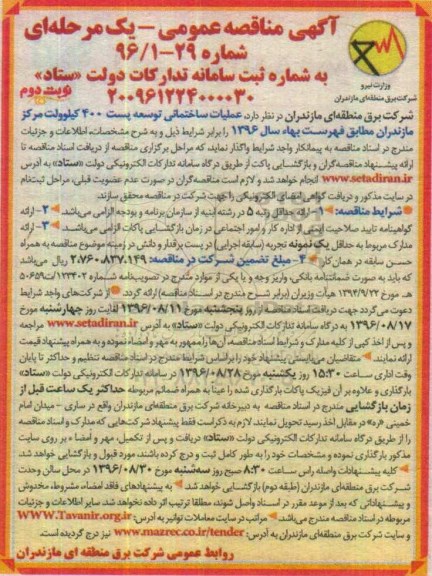 آگهی مناقصه عمومی - یک مرحله‌ای
شماره ۲۹-۹۶/۱
به شماره ثبت سامانه تدارکات دولت «ستاد»
۲۰۰۹۶۱۲۲۴۰۰۰۰۳۰
نوبت دوم
وزارت نیرو
شرکت برق منطقه‌ای مازندران
شرکت برق منطقه‌ای مازندران در نظر دارد، عملیات ساختمانی توسعه پست ۴۰۰ کیلوولت مرکز
مازندران مطابق فهرست بهاء سال ۱۳۹۶ را برابر شرایط ذیل و به شرح مشخصات، اطلاعات و جزئیات
مندرج در اسناد مناقصه به پیمانکار واجد شرایط واگذار نماید، که مراحل برگزاری مناقصه از دریافت اسناد مناقصه تا
ارائه پیشنهاد مناقصه‌گران و بازگشایی پاکت از طریق درگاه سامانه تدارکات الکترونیکی دولت «ستاد» به آدرس
www.setadiran.ir انجام خواهد شد و لازم است مناقصه‌گران در صورت عدم عضویت قبلی، مراحل ثبت‌نام
در سایت مذکور و دریافت گواهی امضای الکترونیکی را جهت شرکت در مناقصه محقق سازند.
شرایط مناقصه: ۱- ارائه حداقل رتبه ۵ در رشته ابنیه از سازمان برنامه و بودجه الزامی می‌باشد. ۲- ارائه
گواهینامه تایید صلاحیت ایمنی از اداره کار و امور اجتماعی در زمان بازگشایی پاکات الزامی می‌باشد. ۳- ارائه
مدارک مربوط به حداقل یک نمونه تجربه (سابقه اجرایی) در پست برقدار و دانش در زمینه موضوع مناقصه به همراه
حسن سابقه در همان کار ۴- مبلغ تضمین شرکت در مناقصه: ۲/۷۶۰/۸۳۷/۱۴۹ ریال می‌باشد
که باید به صورت ضمانتنامه بانکی، واریز وجه و یا یکی از موارد مندرج در تصویب‌نامه شماره ۱۲۳۴۰۲/ت۵۰۶۵۹
هـ مورخ ۱۳۹۴/۹/۲۲ هیأت وزیران (برابر شرح مندرج در اسناد مناقصه) ارائه گردد. از شرکت‌های واجد شرایط
دعوت می‌گردد جهت دریافت اسناد مناقصه از روز پنجشنبه مورخ ۱۳۹۶/۰۸/۱۱ لغایت روز چهارشنبه مورخ
۱۳۹۶/۰۸/۱۷ به درگاه سامانه تدارکات الکترونیکی دولت «ستاد» به آدرس www.setadiran.ir مراجعه
و پس از اخذ کپی از کلیه مدارک و شرایط اسناد مناقصه، آن‌ها را ممهور به مهر و امضاء نموده و به همراه پیشنهاد قیمت
ارائه نمایند. متقاضیان می‌بایستی پیشنهاد خود را براساس شرایط مندرج در اسناد مناقصه تنظیم و حداکثر تا پایان
وقت اداری ساعت ۱۵:۳۰ روز یکشنبه مورخ ۱۳۹۶/۰۸/۲۸ در سامانه تدارکات الکترونیکی دولت «ستاد»
بارگذاری و علاوه بر آن فیزیک پاکات بارگذاری شده را عینا به همراه ضمائم مربوطه حداکثر یک ساعت قبل از
زمان بازگشایی مندرج در اسناد مناقصه به دبیرخانه شرکت برق منطقه‌ای مازندران واقع در ساری - میدان امام
خمینی «ره» در مقابل اخذ رسید تحویل نمایند. لازم به ذکر است فقط پیشنهاد شرکت‌هایی که مدارک و اسناد مناقصه
را از طریق درگاه سامانه تدارکات الکترونیکی دولت «ستاد» دریافت و پس از تکمیل، مهر و امضاء بر روی سایت
مذکور بارگذاری نموده و مشخصات خود را به طور کامل ثبت و درج کرده باشند، مورد قبول و بازگشایی خواهد شد
کلیه پیشنهادات واصله راس ساعت ۸:۳۰ صبح روز سه‌شنبه مورخ ۱۳۹۶/۰۸/۳۰ در محل سالن وحدت
شرکت برق منطقه‌ای مازندران (طبقه دوم) بازگشایی خواهد شد. به پیشنهادهای فاقد امضاء، مشروط، مخدوش
و پیشنهاداتی که بعد از موعد مقرر در اسناد واصل شوند، مطلقا ترتیب اثر داده نخواهد شد. سایر اطلاعات و جزئیات
مربوطه در اسناد مناقصه مندرج می‌باشد. مراتب در سایت معاملات توانیر به آدرس: WWW.Tavanir.org.ir
و سایت شرکت برق منطقه‌ای مازندران به آدرس: www.mazrec.co.ir/tender نیز درج گردیده است.
روابط عمومی شرکت برق منطقه ای مازندران